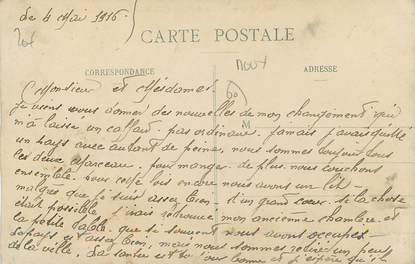 de 4 Mai 1916
CARTE POSTALE
CORRESPONDANCE
ADRESSE
Monsieur et Mesdames
Je viens vous donner des nouvelles de mon changement qui
m'a laissé un cafard pas ordinaire. Jamais j'avais quitté
un pays avec autant de peine, nous sommes toujours tous
les deux Marceau. pour manger de plus nous couchons
ensemble. pour cette fois encore nous avons un lit
malgré que je suis assez bien d'un grand coeur si la chose
était possible j'irais retrouver mon ancienne chambre et
la petite table que si souvent nous avons occupés
pays est assez bien, mais nous sommes retiré un peu
de la ville. La santé est bonne et j'espère qu'il